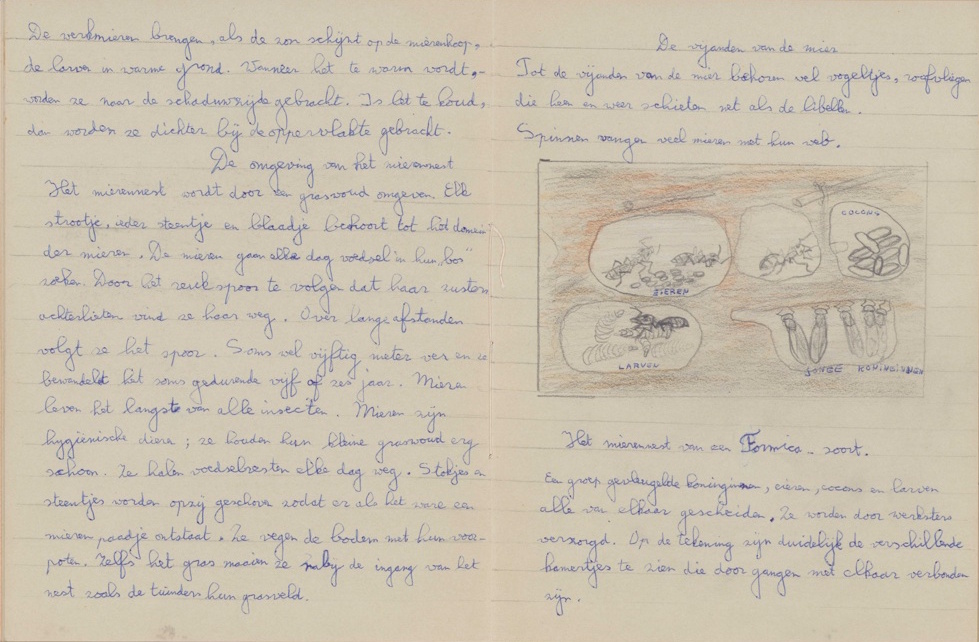 De werkmieren brengen, als de zon schijnt op de mierenhoop,
de larven in warme grond. Wanneer het te warm wordt,
worden ze naar de schaduwzijde gebracht. Is het te koud,
dan worden ze dichter bij de oppervlakte gebracht.
De omgeving van het mierennest
Het mierennest wordt door een graswoud omgeven. Elk
strootje, ieder steentje en blaadje behoort tot het domein
der mieren. De mieren gaan elke dag voedsel in hun "bos"
zoeken. Door het reukspoor te volgen dat haar zusters
achterlieten vind ze haar weg. Over lange afstanden
volgt ze het spoor. Soms wel vijftig meter ver en ze
bewandelt het soms gedurende vijf of zes jaar. Mieren
leven het langste van alle insecten. Mieren zijn
hygiënische dieren; ze houden hun kleine graswoud erg
schoon. Ze halen voedselresten elke dag weg. Stokjes en
steentjes worden opzij geschoven zodat er als het ware een
mieren paadje ontstaat. Ze vegen de bodem met hun voor-
poten. Zelfs het gras maaien ze nabij de ingang van het
nest zoals de tuinders hun grasveld.
De vijanden van de mier
Tot de vijanden van de mier behoren wel vogeltjes, roofvliegen
die heen en weer schieten net als de libellen.
Spinnen vangen veel mieren met hun web.
COCONS
EIEREN
LARVEN
JONGE KONINGINNEN
Het mierennest van een Formica - soort.
Een groep gevleugelde koninginnen, eieren, cocons en larven
alle van elkaar gescheiden. Ze worden door werksters
verzorgd. Op de tekening zijn duidelijk de verschillende
kamertjes te zien die door gangen met elkaar verbonden
zijn.